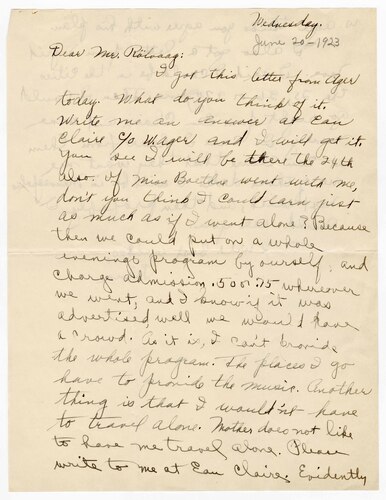 Wednesday.
June 20-1923
Dear Mr. Rolvaag:
I got this letter from Ager
today. What do you think of it.
Write me an answer at Eau
Claire c/o W. Ager and I will get it.
You see I will be there the 24th
also. If Miss Boethe went with me,
don't you think I could earn just
as much as if I went alone? Because
then we could put on a whole
evenings program by ourself, and
charge admission .50 or .75 wherever
we went, and I know if it was
advertised well we would have
a crowd. As it is, I can't provide
the whole program. The places I go
have to provide the music. Another
thing is that I wouldn't have
to travel alone. Mother does not like
to have me travel alone. Please
write to me at Eau Claire. Evidently